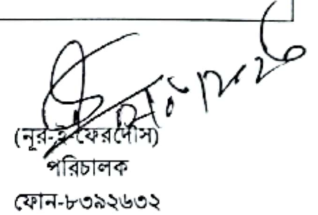 (নূর-ই-ফেরদৌস)
পরিচালক
ফোন-৮৩৯২৬৩২